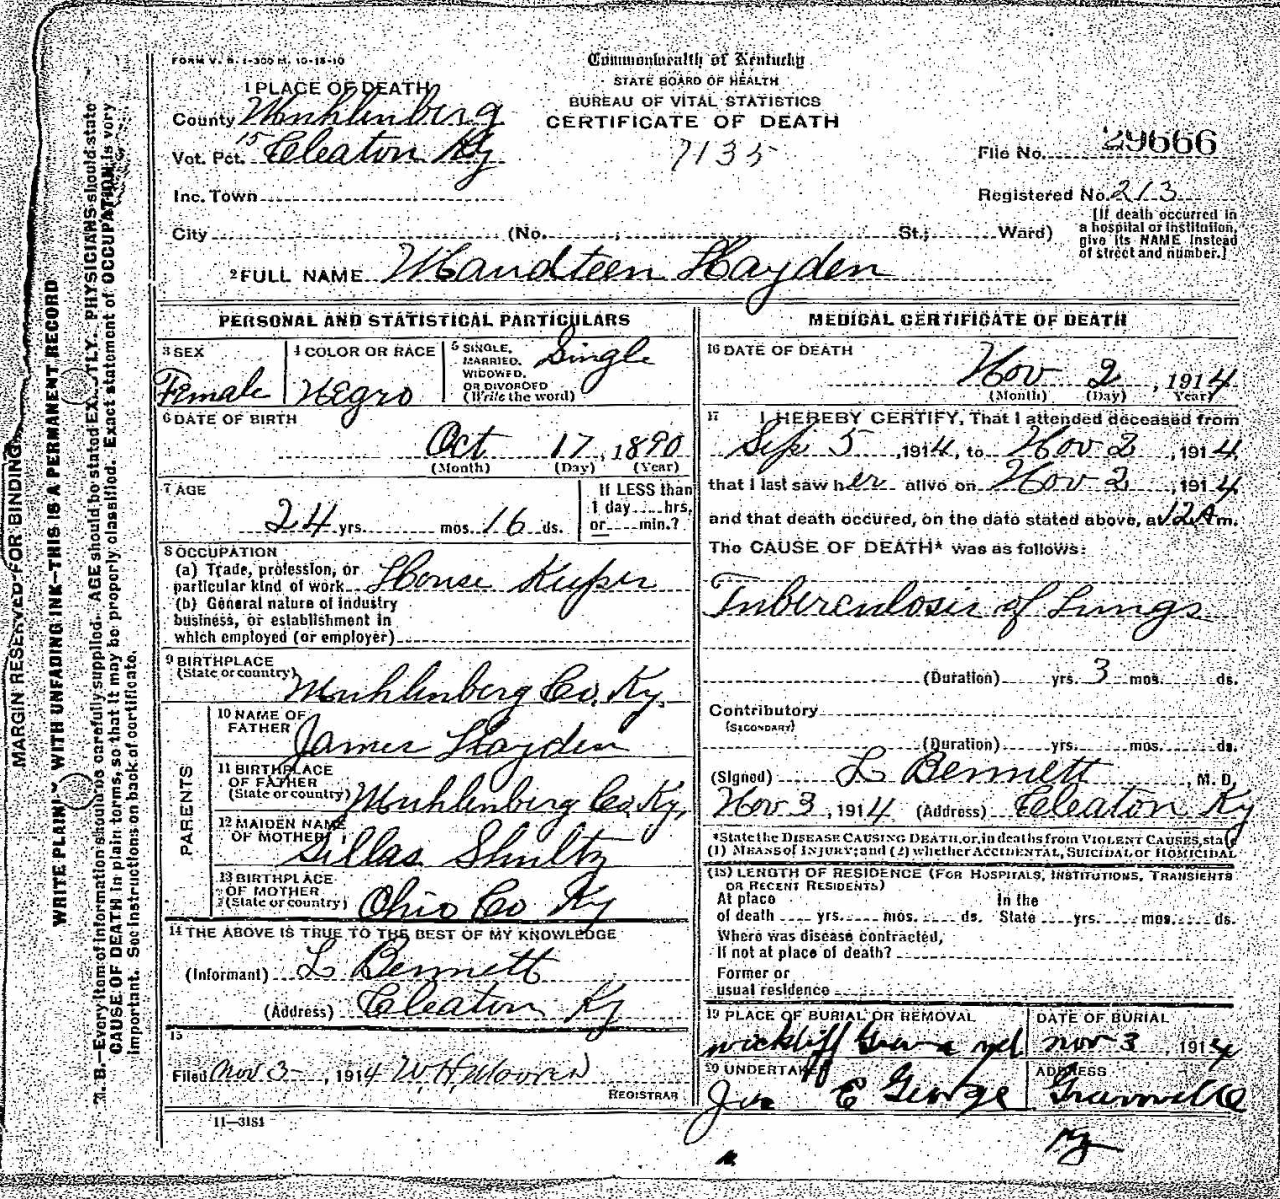 FORM V. S. 1-300 M. 10-18-10
Commonwealth of Kentucky
STATE BOARD OF HEALTH
BUREAU OF VITAL STATISTICS
CERTIFICATE OF DEATH
7135
1 PLACE OF DEATH
County Muhlenberg
Vot. Pct. 15 Cleaton Ky
Inc. Town
City (No. , St.; Ward)
File No. 29666
Registered No. 213
[If death occurred in
a hospital or institution,
give its NAME instead
of street and number.]
2 FULL NAME Maudteen Hayden
PERSONAL AND STATISTICAL PARTICULARS
3 SEX Female
4 COLOR OR RACE Negro
5 SINGLE, MARRIED, WIDOWED, OR DIVORCED (Write the word) Single
6 DATE OF BIRTH
Oct 17, 1890
(Month) (Day) (Year)
7 AGE
24 yrs. mos. 16 ds.
If LESS than
1 day hrs.
or min.?
8 OCCUPATION
(a) Trade, profession, or
particular kind of work House Keeper
(b) General nature of industry
business, or establishment in
which employed (or employer)
9 BIRTHPLACE
(State or country) Muhlenberg Co. Ky.
PARENTS
10 NAME OF
FATHER James Hayden
11 BIRTHPLACE
OF FATHER
(State or country) Muhlenberg Co. Ky.
12 MAIDEN NAME
OF MOTHER Shultz
13 BIRTHPLACE
OF MOTHER
(State or country) Ohio Co Ky
14 THE ABOVE IS TRUE TO THE BEST OF MY KNOWLEDGE
(Informant) L Bennett
(Address) Cleaton Ky
15
Filed Nov 3, 1914 W. H.
REGISTRAR
11-3184
MEDICAL CERTIFICATE OF DEATH
16 DATE OF DEATH
Nov 2, 1914
(Month) (Day) (Year)
17 I HEREBY CERTIFY, That I attended deceased from
Sep 5, 1914, to Nov 2, 1914,
that I last saw her alive on Nov 2, 1914
and that death occured, on the date stated above, at 12 A m.
The CAUSE OF DEATH* was as follows:
Tuberculosis of Lungs
(Duration) yrs. 3 mos. ds.
Contributory
(SECONDARY)
(Duration) yrs. mos. ds.
(Signed) L Bennett, M. D.
Nov 3, 1914 (Address) Cleaton Ky
*State the DISEASE CAUSING DEATH, or, in deaths from VIOLENT CAUSES, state
(1) MEANS of INJURY; and (2) whether ACCIDENTAL, SUICIDAL or HOMICIDAL
(18) LENGTH OF RESIDENCE (FOR HOSPITALS, INSTITUTIONS, TRANSIENTS
OR RECENT RESIDENTS)
At place In the
of death yrs. mos. ds. State yrs. mos. ds.
Where was disease contracted,
If not at place of death?
Former or
usual residence
19 PLACE OF BURIAL OR REMOVAL
wickliff Grave yd
DATE OF BURIAL
nov 3, 1914
20 UNDERTAKER
E George
ADDRESS
Ky
MARGIN RESERVED FOR BINDING
WRITE PLAINLY WITH UNFADING INK—THIS IS A PERMANENT RECORD
N. B.—Every item of information should be carefully supplied. AGE should be stated EXACTLY. PHYSICIANS should state
CAUSE OF DEATH in plain terms, so that it may be properly classified. Exact statement of OCCUPATION is very
important. See instructions on back of certificate.